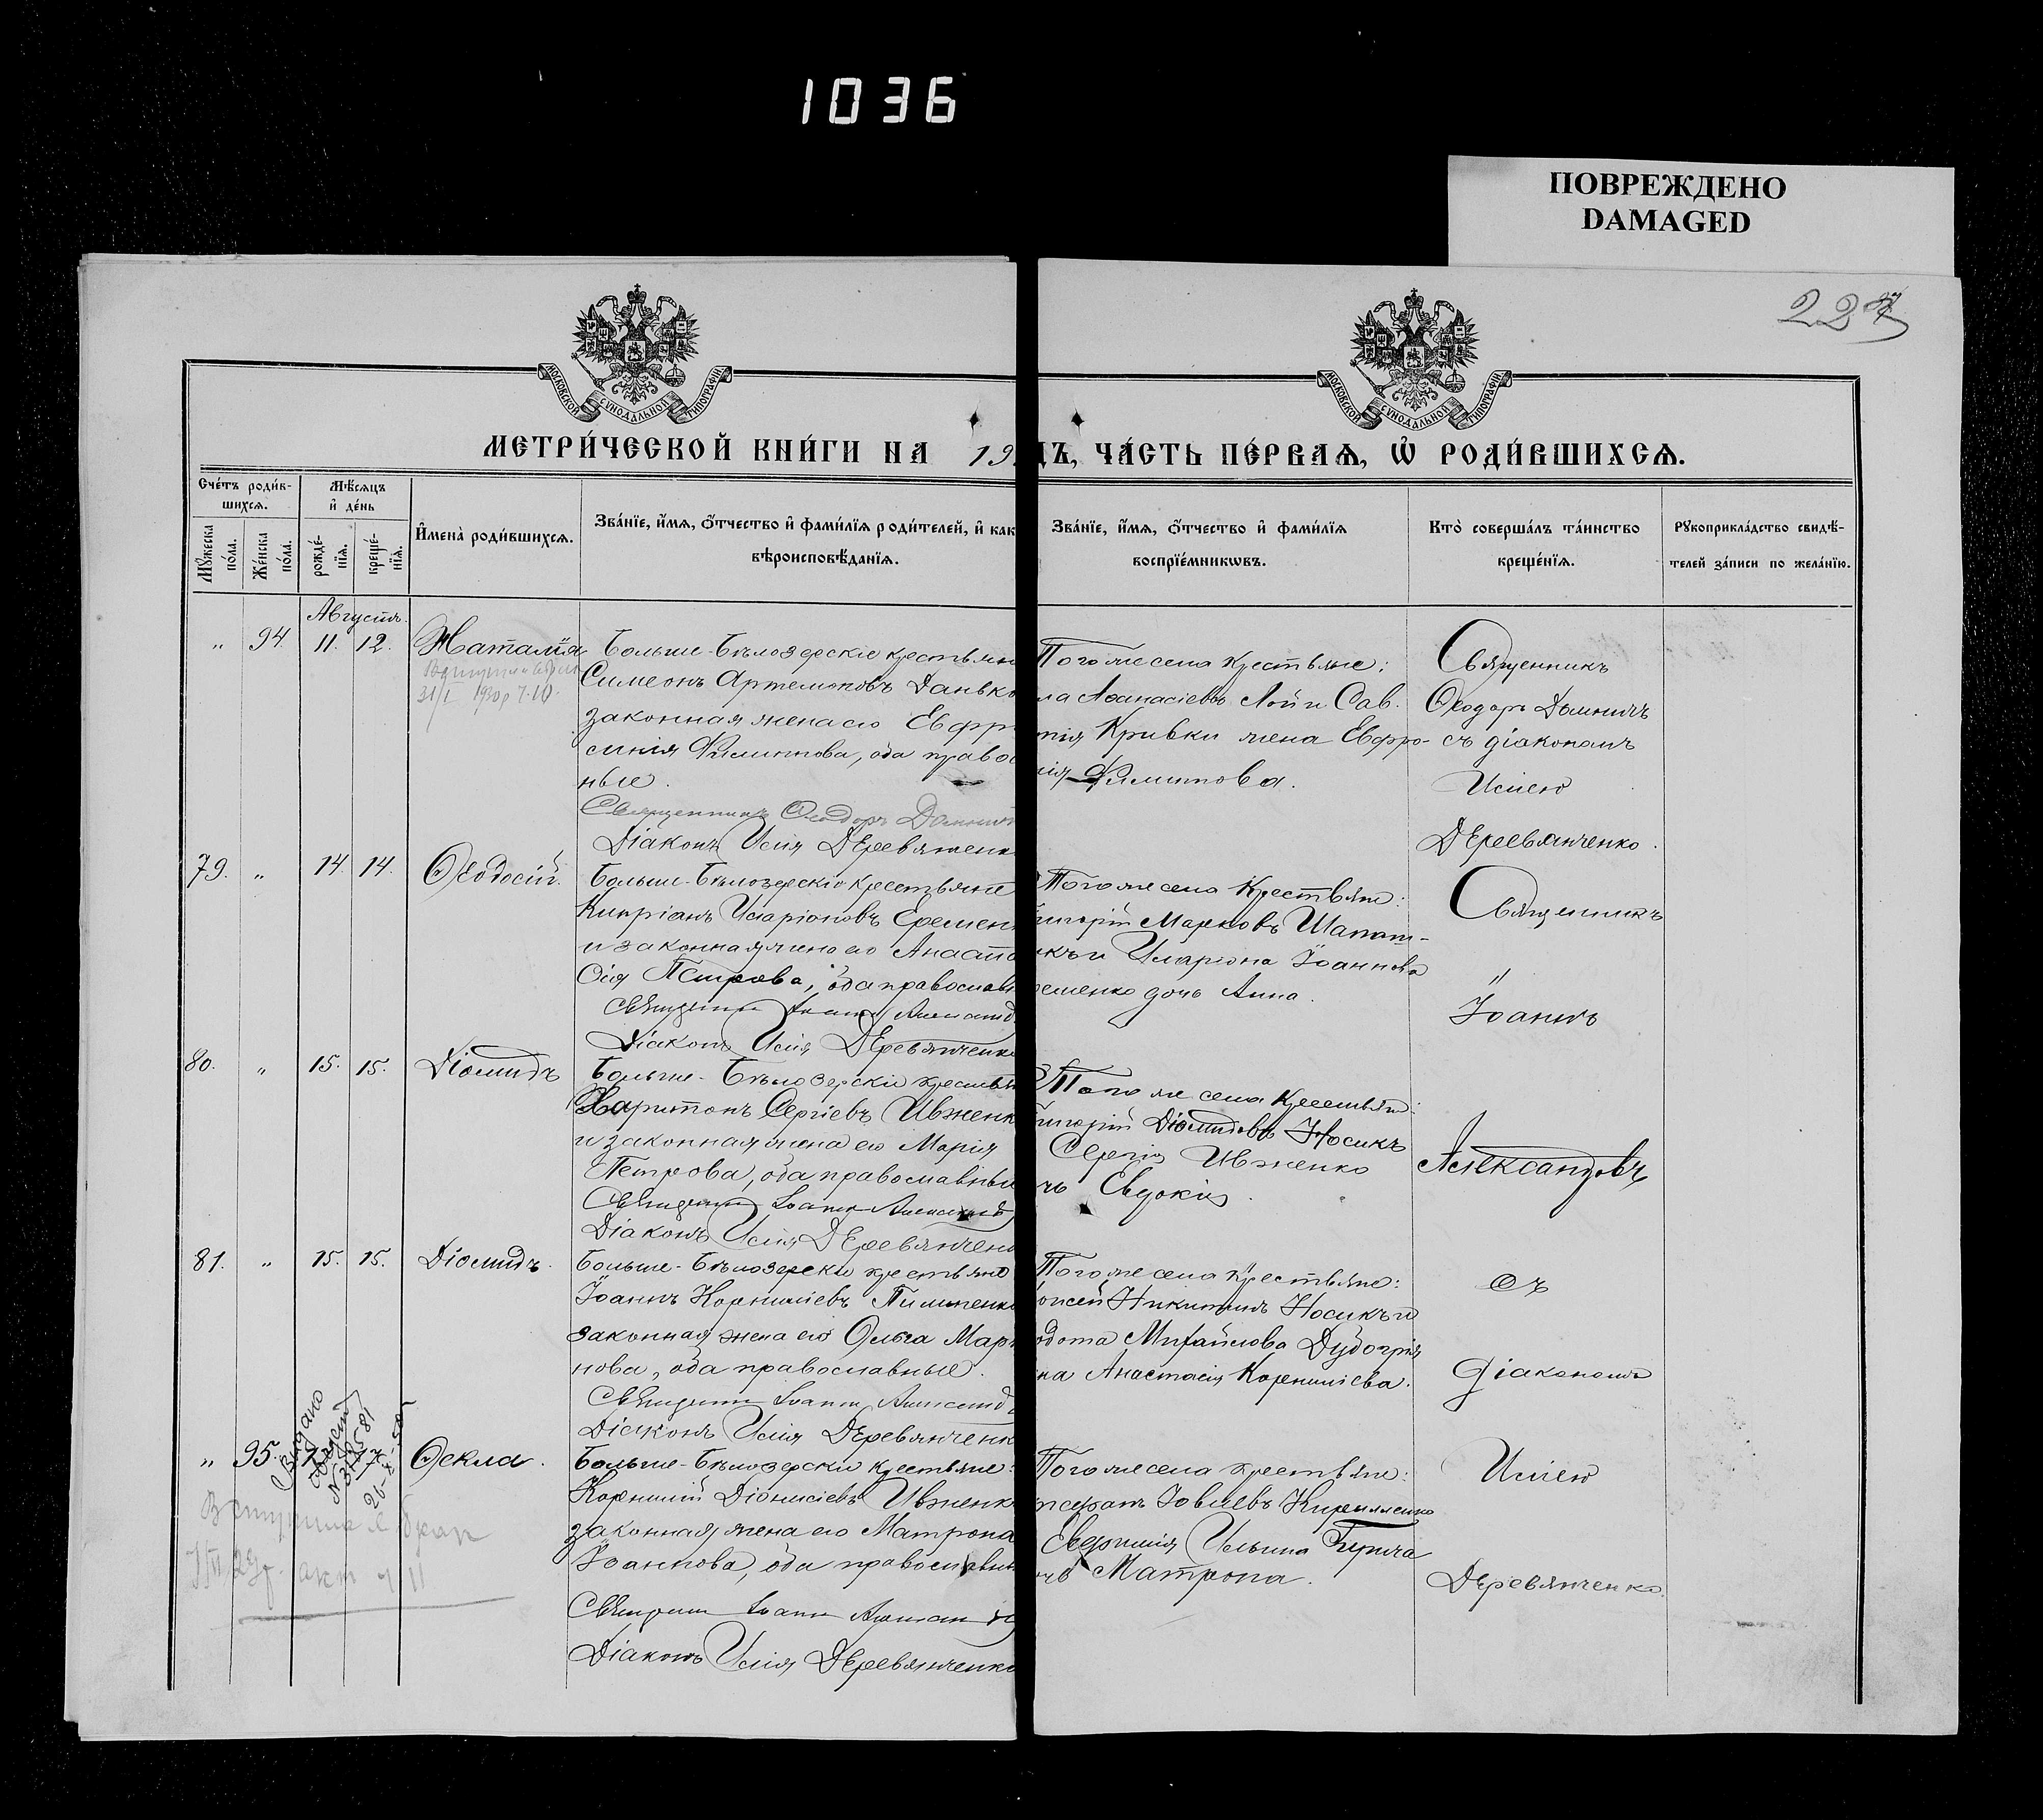 1036
ПОВРЕЖДЕНО
DAMAGED
МОСКОВСКОЙ СѴНОДАЛЬНОЙ ТИПОГРАФІИ
МОСКОВСКОЙ СѴНОДАЛЬНОЙ ТИПОГРАФІИ
МЕТРИ́ЧЕСКОЙ КНИ́ГИ НА 19
ДЪ, ЧА́СТЬ ПЕ́РВАѦ, Ѡ РОДИ́ВШИХСѦ.
Сче́тъ роди́в-
шихсѧ.
Мꙋ́жеска по́ла.
Же́нска по́ла.
Мѣ́сѧцъ
и҆ де́нь
рожде́-
нїѧ.
креще́-
нїѧ.
И҆мена̀ роди́вшихсѧ.
Зва́нїе, и҆́мѧ, ѻ҆́тчество и҆ фами́лїѧ роди́телей, и҆ как
вѣроисповѣ́данїѧ.
Зва́нїе, и҆́мѧ, ѻ҆́тчество и҆ фами́лїѧ
воспрїе́мникѡвъ.
Кто̀ соверша́лъ та́инство
креще́нїѧ.
Рꙋкоприкла́дство свидѣ́-
телей за́писи по жела́нїю.
Августъ.
" 94. 11. 12. Наталія
31/I 1930 р
Больше-Бѣлозерскіе крестьян
Симеонъ Артемоновъ Данько
законная жена его Евфр
синія Филиппова, оба правос
ные.
Священникъ Ѳеодоръ
Діаконъ Исія Деревянченк
Того же села крестьяне:
ла Аѳанасіевъ Лой и Сав.
тія Кривки жена Евфро-
нія Филиппова.
Священникъ
Ѳеодоръ
съ діакономъ
Исіею
Деревянченко.
79. " 14. 14. Ѳеодосій.
Больше-Бѣлозерскіе крестьяне
Кипріанъ Иларіоновъ Еремен
и законная жена его Анаста
сія Петрова, оба православн
Священникъ Іоаннъ Александ
Діаконъ Исія Деревянченко
Того же села крестьяне:
ригорій Марковъ
къ и Иларіона Іоаннова
ременко дочь Анна.
Священникъ
"
Іоаннъ
80. " 15. 15. Діомидъ
Больше-Бѣлозерскіе крестьян
Харитонъ Сергіевъ Ивженк
и законная жена его Марія
Петрова, оба православны
Священникъ Іоаннъ Александ
Діаконъ Исія Деревянченк
Того же села крестьяне:
ригорій Діомидовъ Носикъ
Сергія Ивженко
чь Евдокія.
Александровъ
81. " 15. 15. Діомидъ.
Больше-Бѣлозерскіе крестьяне
Іоаннъ Корниліевъ Пилипенко
законная жена его Ольга Март
нова, оба православные.
Священникъ Іоаннъ Александ
Діаконъ Исія Деревянченк
Того же села крестьяне:
оисей Никитинъ Носикъ и
одота Михайлова
на Анастасія Корниліева.
съ
діакономъ
" 95. 17 Ѳекла.
Больше-Бѣлозерскіе крестьяне:
Корнилій Діонисіевъ Ивженк
законная жена его Матрона
Іоаннова, оба православны
Священникъ Іоаннъ Александ
Діаконъ Исія Деревянченко
Того же села крестьяне:
Іовлевъ
Ильина
чь Матрона.
Исіею
Деревянченко.